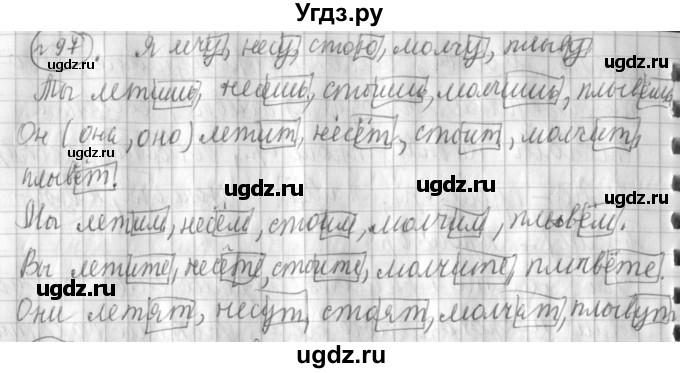 Угдз.ру
(г 97). Я лечу, несу, стою, молчу, плыву
Ты летишь, несёшь, стоишь, молчишь, плывёшь
Он (она, оно) летит, несёт, стоит, молчит,
плывёт.
Мы летим, несём, стоим, молчим, плывём.
Вы летите, несёте, стоите, молчите, плывёте.
Они летят, несут, стоят, молчат, плывут.
ugdz.ru
ugdz.ru
ugdz.ru
ugdz.ru
ugdz.ru
ugdz.ru
ugdz.ru
ugdz.ru
ugdz.ru